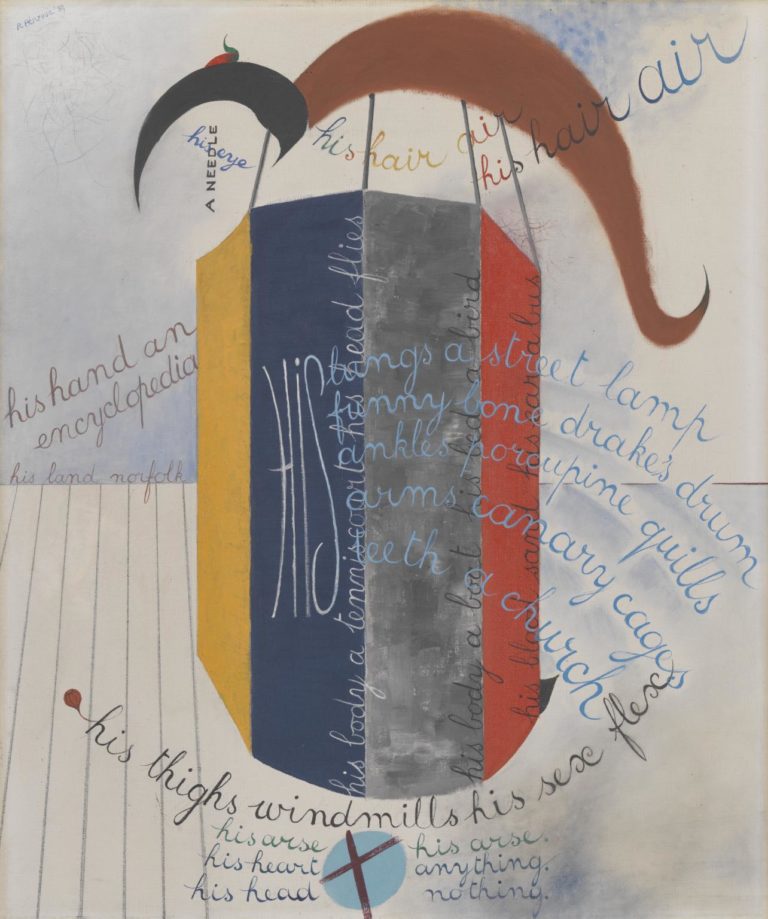 R. Penrose '39
his eye
A NEEDLE
his hair air
his hair air
his hand an
encyclopedia
his land norfolk
HIS
lungs a street lamp
funny bone drake's drum
ankles porcupine quills
arms canary cages
teeth a church
his body a tenniscourt his head flies
his body a boot his bed a bird
his sand his
his thighs windmills his sex flex
his arse
his heart
his head
his arse.
anything.
nothing.